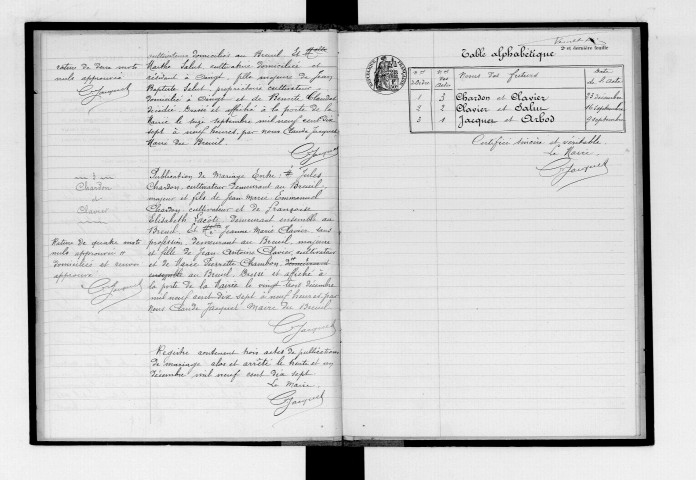 rature de deux mots
nuls approuvée
C Jacquet
cultivateur domicilié au Breuil. Et Mlle
Salut cultivatrice domiciliée et
résidant à fille majeure de Jean
Baptiste Salut, propriétaire cultivateur
domicilié à et de Benoite Claudat
Dressé et affiché à la porte de la
Mairie le seize septembre mil neuf cent dix
sept à neuf heures, par nous Claude Jacquet
Maire du Breuil.
C Jacquet
n° 3
Chardon
et
Clavier
Publication de Mariage Entre: M. Jules
Chardon, cultivateur demeurant au Breuil,
majeur et fils de Jean Marie Emmanuel
Chardon, cultivateur et de Françoise
Elisabeth demeurant ensemble au
Breuil. Et Mlle Jeanne Marie Clavier sans
profession demeurant au Breuil majeure
et fille de Jean Antoine Clavier, cultivateur
et de Marie Pierrette Chambon,
ensemble au Breuil. Dressé et affiché à
la porte de la Mairie le vingt trois décembre
mil neuf cent dix sept à neuf heures par
nous Claude Jacquet Maire du Breuil
C Jacquet
Rature de quatre mots
nuls approuvée
domiciliés et renvoi
approuvé
C Jacquet
Registre contenant trois actes de publication
de mariage clos et arrêté le trente et un
décembre mil neuf cent dix sept.
Le Maire.
C Jacquet
2e et dernière feuille
Table alphabétique
Nos d'Ordre Nos des Actes Noms des Futurs Date de l'Acte
1 3 Chardon et Clavier 23 décembre
2 2 Clavier et Salut 16 septembre
3 1 Jacquet et Arbod 9 septembre
Certifiée sincère et véritable.
Le Maire.
C Jacquet